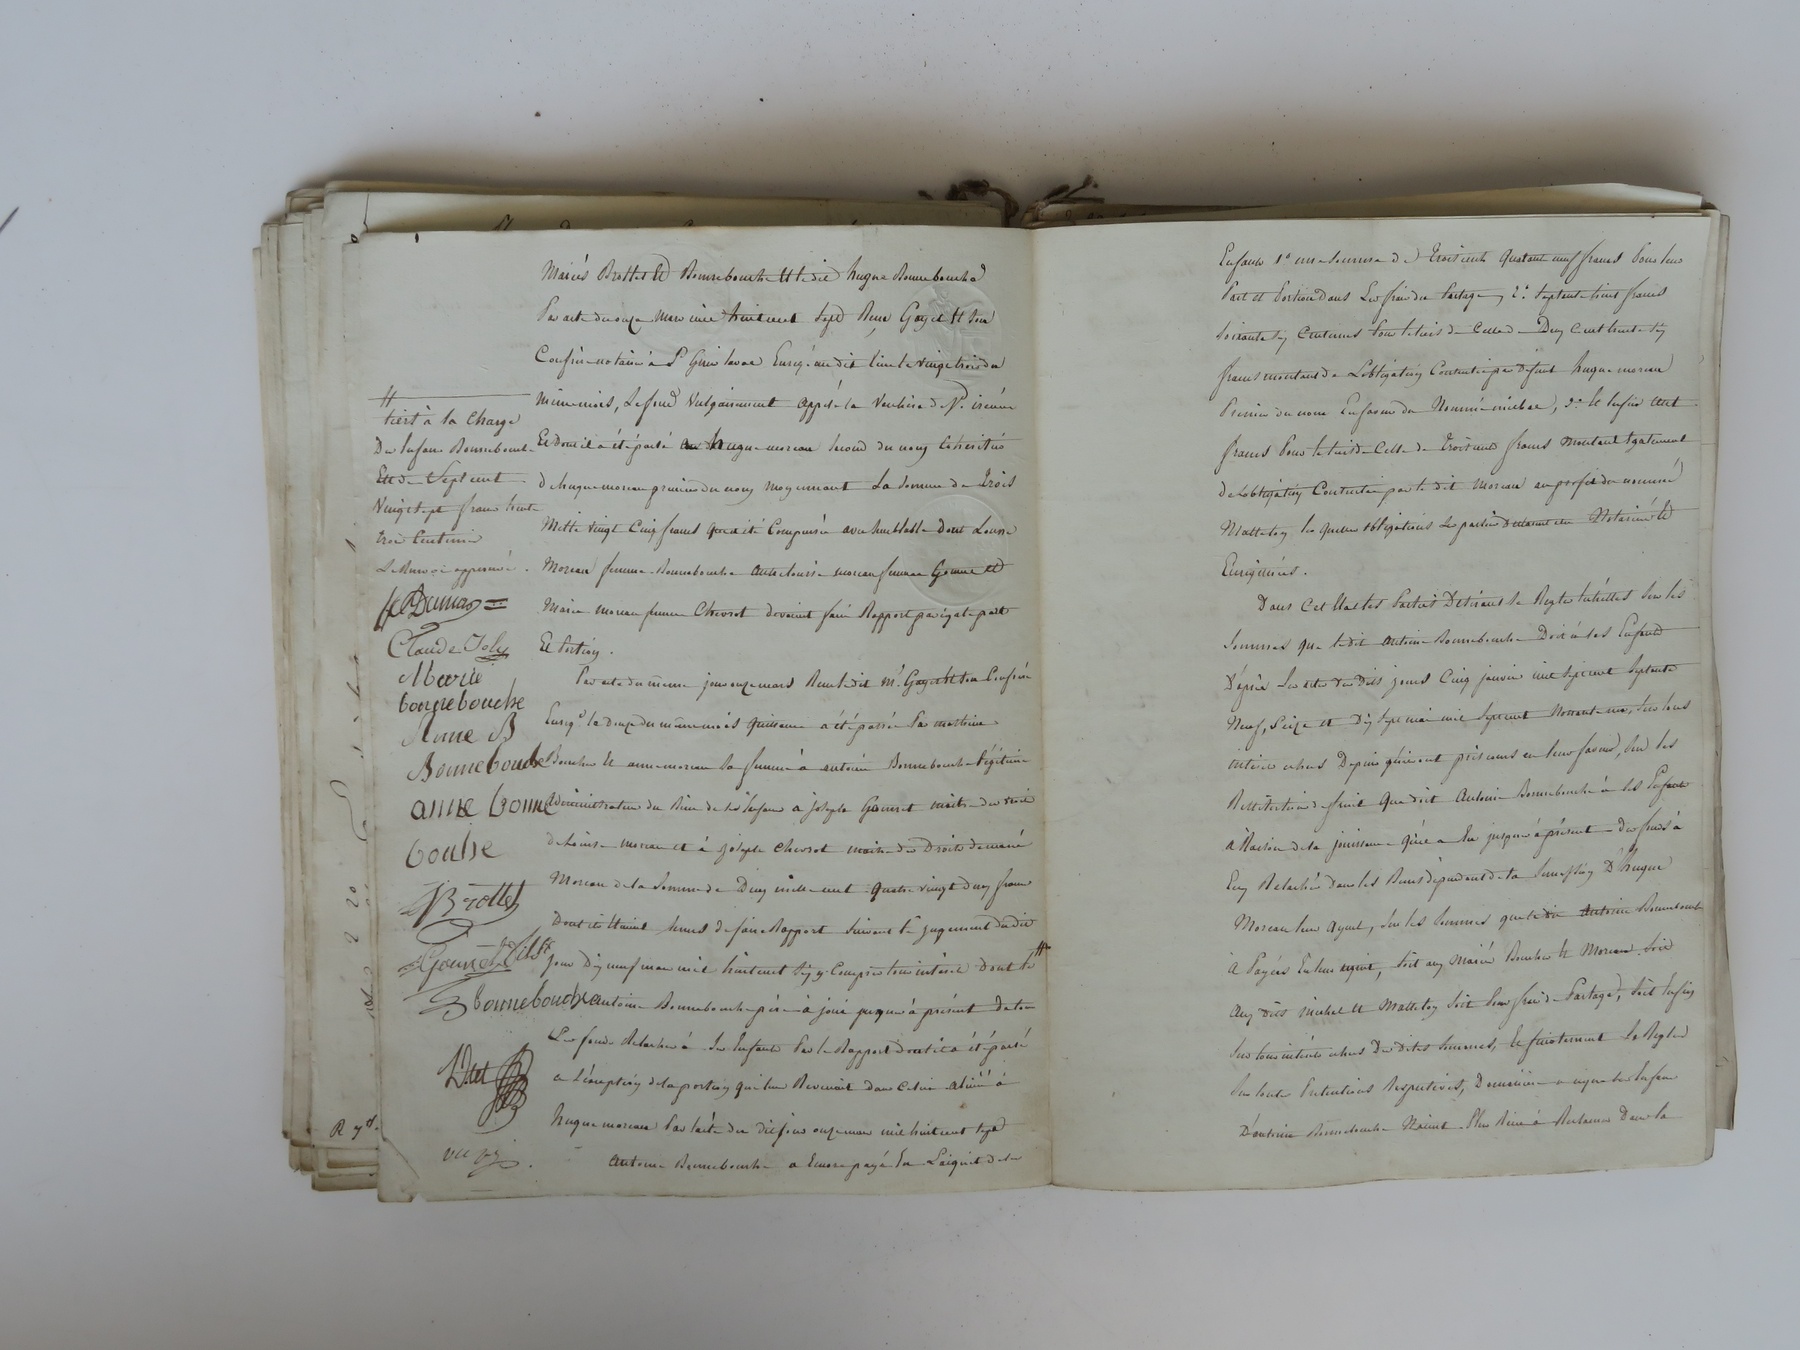 Mariés Brottet et Bonnebouche et ledit hugue Bonnebouche
Par acte du onze mars mil huit cent sept Reçu Gayet et son
Confrère notaire à St Genis laval Enreg. au dit lieu le vingt trois du
même mois, le fond vulgairement appelé la Verchère de St irénée
Et Donzil a été passé hugue moreau second du nom cohéritié
d'hugue moreau premier du nom moyennant La somme de Trois
Mille vingt Cinq francs qui a été Compensée avec semblable Dont Louise
Moreau femme Bonnebouche autre louise moreau femme Gonnet et
Marie moreau femme Chevrot devaient faire Rapport par égale part
Et Portion.
Par acte du même jour onze mars Reçu le dit Mr. Gayet et son Confrère
Enregé. le douze du même mois quittance a été passée Par
Boucher et anne moreau sa femme à antoine Bonnebouche légitime
administrateur du Bien de ses Enfans à joseph Gonnet maitre des droits
de Louise moreau et à joseph Chevrot maitre des Droits de marie
Moreau de la Somme de Deux mille cent quatre vingt deux francs
Dont ils étaient tenus de faire Rapport suivant le jugement du dit
jour Dix neuf mars mil huit cent six y Compris tous intérêts dont le
antoine Bonnebouche père à joui jusqu'à présent De tous
Les fonds Relachés à ses Enfants Par le Rapport dont il a été parlé
a l'éxception de la portion qui leur Revenait dans Celui aliéné à
hugue moreau Par l'acte du dit jour onze mars mil huit cent sept
antoine Bonnebouche a Encore payé En L'acquit de ses
#
tiers à la Charge
Des Enfans Bonnebouche
Est de Sept cent
Vingt sept francs trente
trois Centimes
Le Renvoi approuvé.
Dumas
Claude Joly
Marie
bonnebouche
Anne B
Bonnebouche
anne bonne
bouche
Brottet
Gonnet fils
Bonnebouche
R
Enfants 1° une somme de Trois cent quarante neuf francs Pour leur
Part et Portion dans Les frais de Partage, 2.° Septante huit francs
soixante six Centimes Pour le tiers de Celle de Deux Cent trente six
francs montant de L'obligation Contractée par défunt hugue moreau
Premier du nom En faveur du Nommé michel, 3.° Et Enfin Cent
francs Pour le tiers de Celle de Trois cent francs Montant également
de L'obligation Contractée par le dit Moreau au profit du nommé
Matteloy les quelles obligations Les parties déclarent être Notariées et
Enregistrées.
Dans Cet état les Parties Désirant se Regler entr'elles sur les
Sommes que le dit antoine Bonnebouche Doit à ses Enfants
D'après Les actes des dits jours Cinq janvier mil sept cent septante
Neuf, seize et Dix Sept mai mil sept cent Nonante un, sur tous
intérêts échus Depuis qu'ils ont pris cours en leur faveur, sur les
Restitution de fruits Que doit Antoine Bonnebouche à ses Enfans
à Raison de la jouissance qu'il a Eu jusqu'à présent des fonds à
Eux Relachés dans les Biens dépendant de la Succession D'hugue
Moreau leur ayeul, sur les sommes que le dit Antoine Bonnebouche
à Payées En leur acquit, soit aux Mariés Boucher et Moreau soit
aux dits michel et Matteloy soit Pour frais de Partage, soit Enfin
sur tous intérêts échus Des dites sommes, Et finalement se Regler
sur toutes Prétentions Respectives, De manière a ce que les Enfans
D'antoine Bonnebouche N'aient Plus Rien à Réclamer Dans la